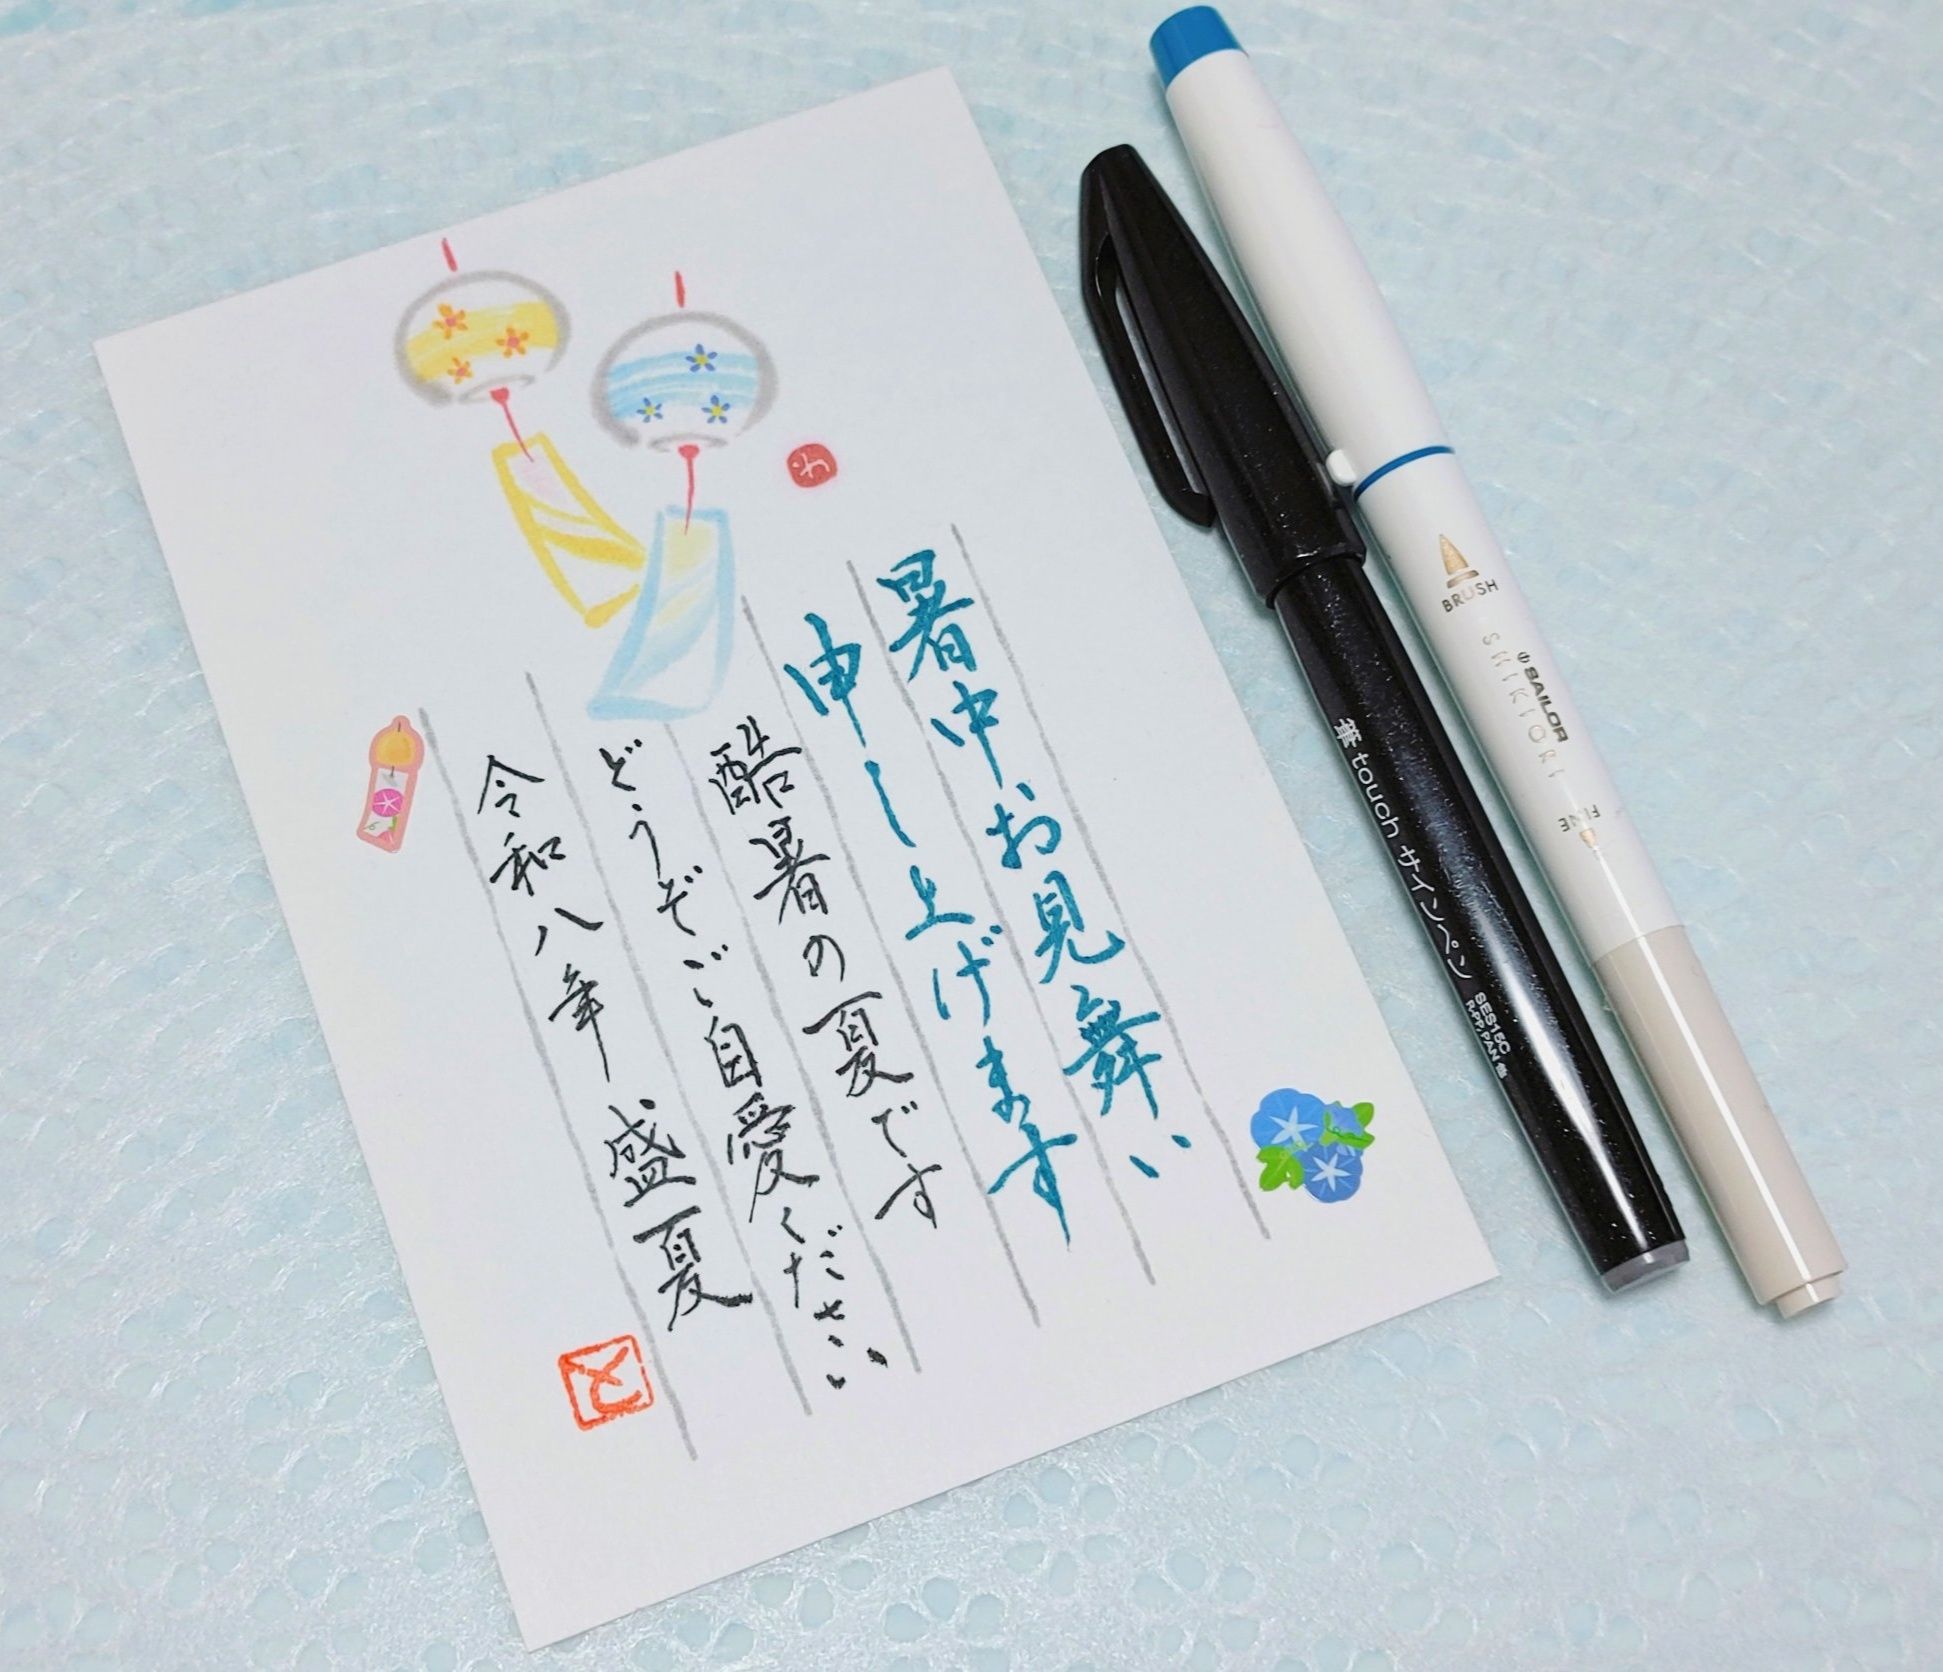 暑中お見舞い
申し上げます
酷暑の夏です
どうぞご自愛ください
令和八年 盛夏
と
筆touch サインペン
SES15C
BRUSH
SAILOR
SHIKIORI
FINE